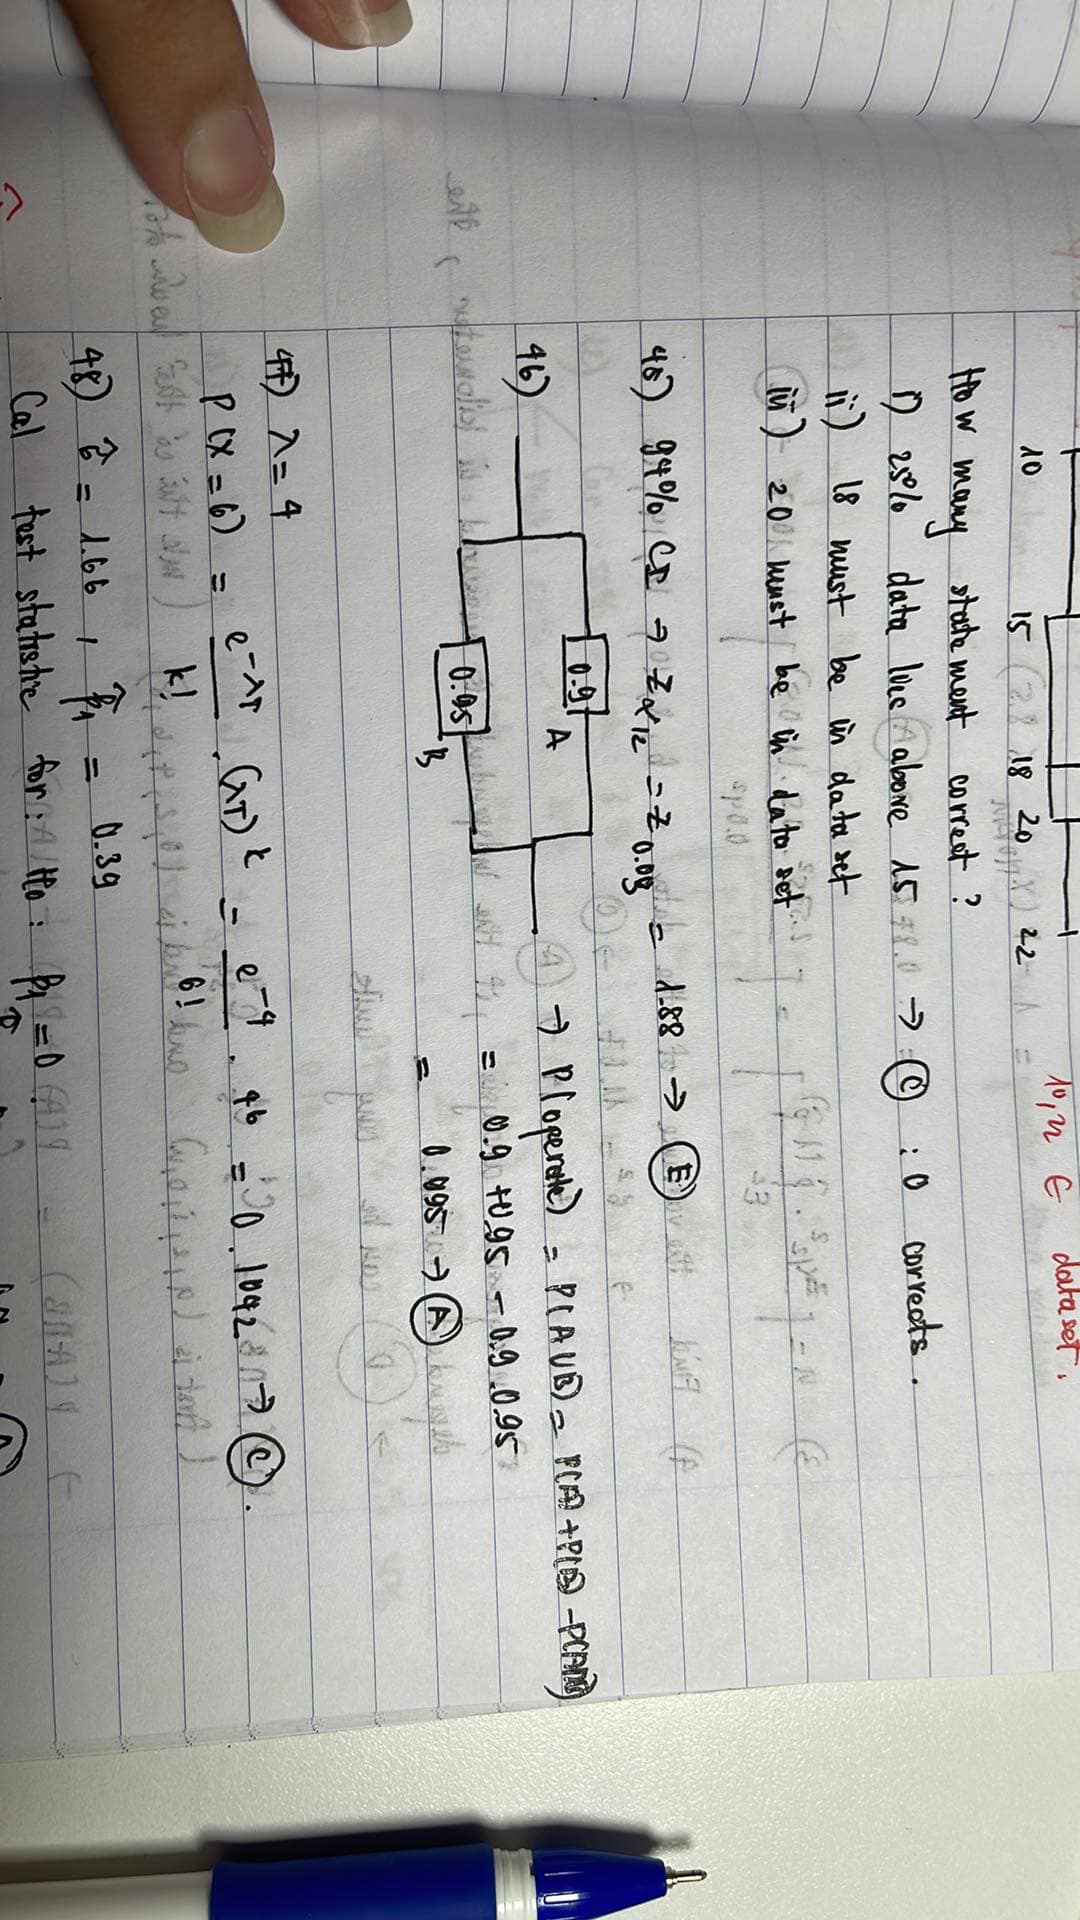 10 15 18 20 22
10, 22 ∈ dataset.
How many statement correct ?
i) 25% data lies above 15 → C : 0 corrects.
ii) 18 must be in data set
iii) 20 must be in data set
45) 94% CI → Z α/2 = Z 0.03 = 1.88 → E
46) 0.9 A → P(operate) = P(A∪B) = P(A) + P(B) - P(A∩B)
= 0.9 + 0.95 - 0.9 . 0.95
0.95 B = 0.995 → A
47) λ = 4
P(X = 6) = e^-λT / k! . (λT)^k = e^-4 / 6! . 4^6 = 0.1042 → C.
48) σ̂ = 1.66 , β̂1 = 0.39
Cal test statistic for : H0 : β1 = 0.